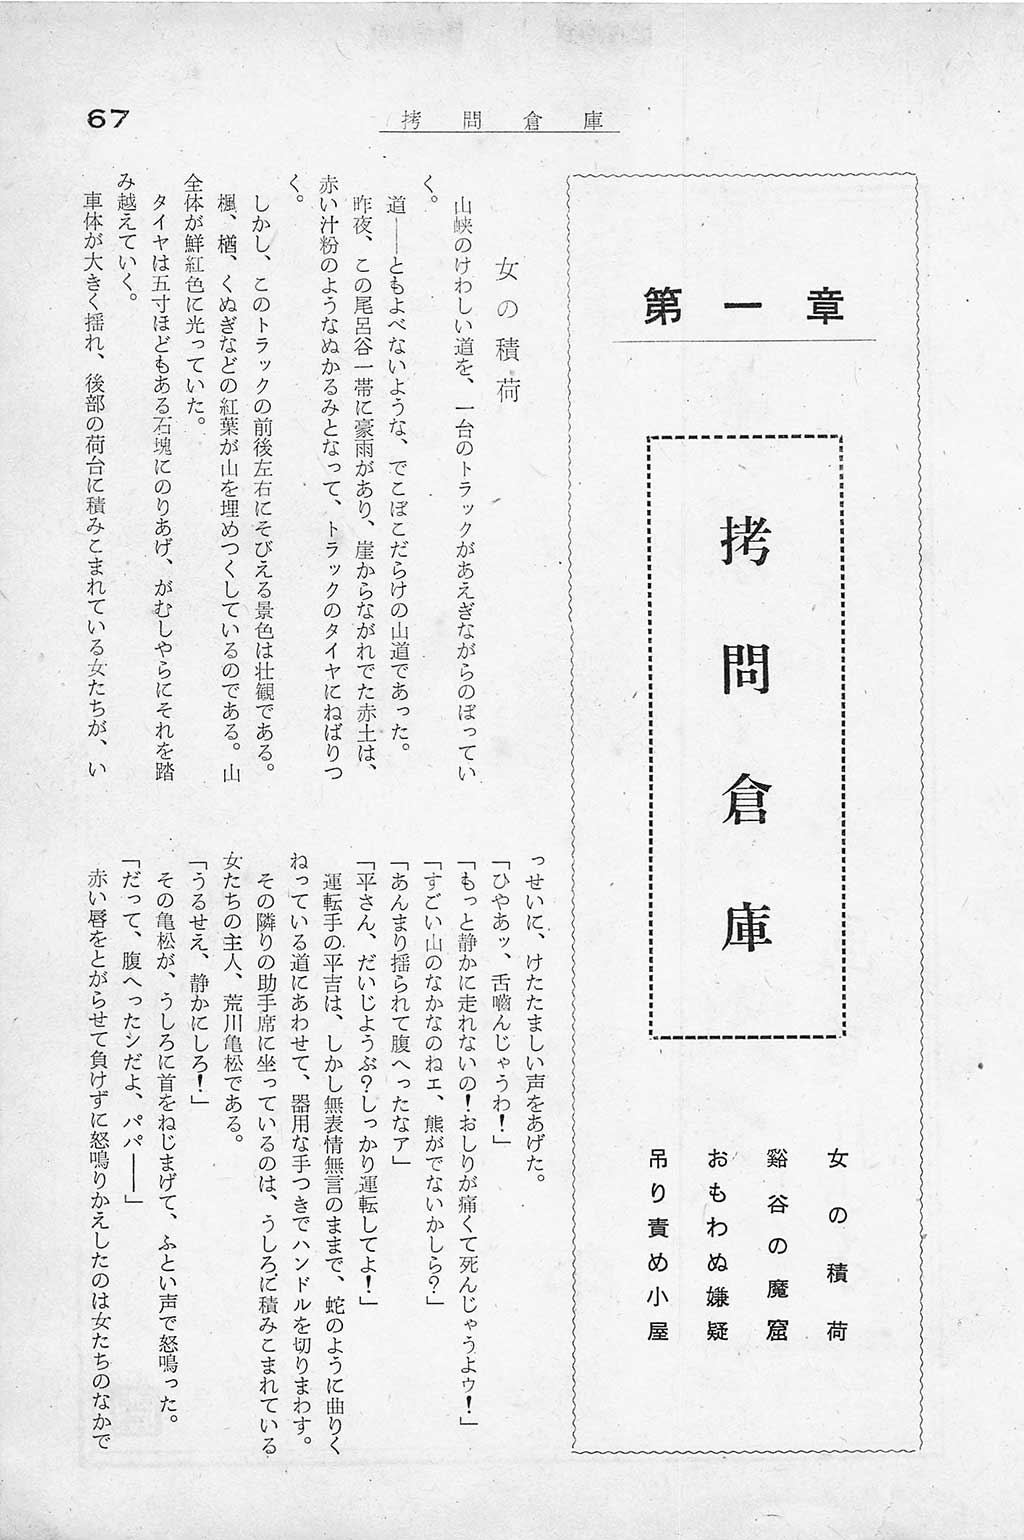 67
拷問倉庫
第一章
拷問倉庫
女の積荷
谿谷の魔窟
おもわぬ嫌疑
吊り責め小屋
女の積荷
山峡のけわしい道を、一台のトラックがあえぎながらのぼってい
く。
道――ともよべないような、でこぼこだらけの山道であった。
昨夜、この尾呂谷一帯に豪雨があり、崖からながれでた赤土は、
赤い汁粉のようなぬかるみとなって、トラックのタイヤにねばりつ
く。
しかし、このトラックの前後左右にそびえる景色は壮観である。
楓、楢、くぬぎなどの紅葉が山を埋めつくしているのである。山
全体が鮮紅色に光っていた。
タイヤは五寸ほどもある石塊にのりあげ、がむしやらにそれを踏
み越えていく。
車体が大きく揺れ、後部の荷台に積みこまれている女たちが、い
っせいに、けたたましい声をあげた。
「ひやあッ、舌嚙んじゃうわ！」
「もっと静かに走れないの！おしりが痛くて死んじゃうよゥ！」
「すごい山のなかなのねェ、熊がでないかしら？」
「あんまり揺られて腹へったなア」
「平さん、だいじようぶ？しっかり運転してよ！」
運転手の平吉は、しかし無表情無言のままで、蛇のように曲りく
ねっている道にあわせて、器用な手つきでハンドルを切りまわす。
その隣りの助手席に坐っているのは、うしろに積みこまれている
女たちの主人、荒川亀松である。
「うるせえ、静かにしろ！」
その亀松が、うしろに首をねじまげて、ふとい声で怒鳴った。
「だって、腹へったシだよ、パパ――」
赤い唇をとがらせて負けずに怒鳴りかえしたのは女たちのなかで